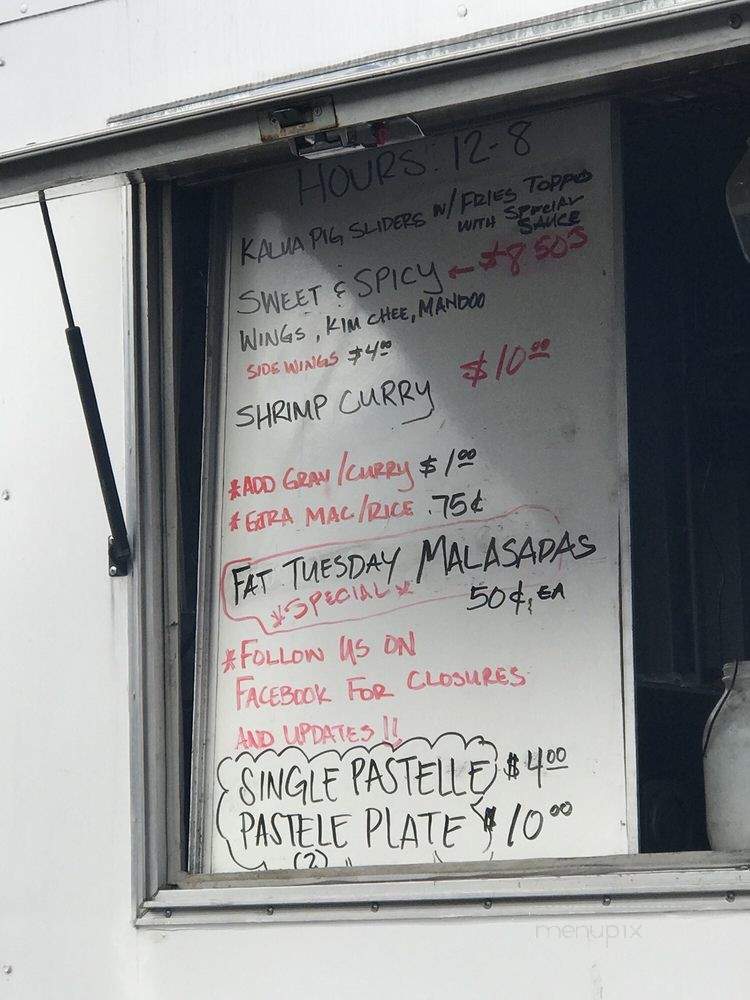 HOURS: 12-8
KALUA PIG SLIDERS W/ FRIES TOPPED
WITH SPECIAL
SAUCE
SWEET & SPICY ← $8 50
WINGS, KIM CHEE, MANDOO
SIDE WINGS $4.00
$10.00
SHRIMP CURRY
*ADD GRAV/CURRY $1.00
*EXTRA MAC/RICE .75¢
FAT TUESDAY MALASADAS
*SPECIAL* 50¢, EA
*FOLLOW US ON
FACEBOOK FOR CLOSURES
AND UPDATES !!
SINGLE PASTELLE $4.00
PASTELE PLATE $10.00
(2)
menupix